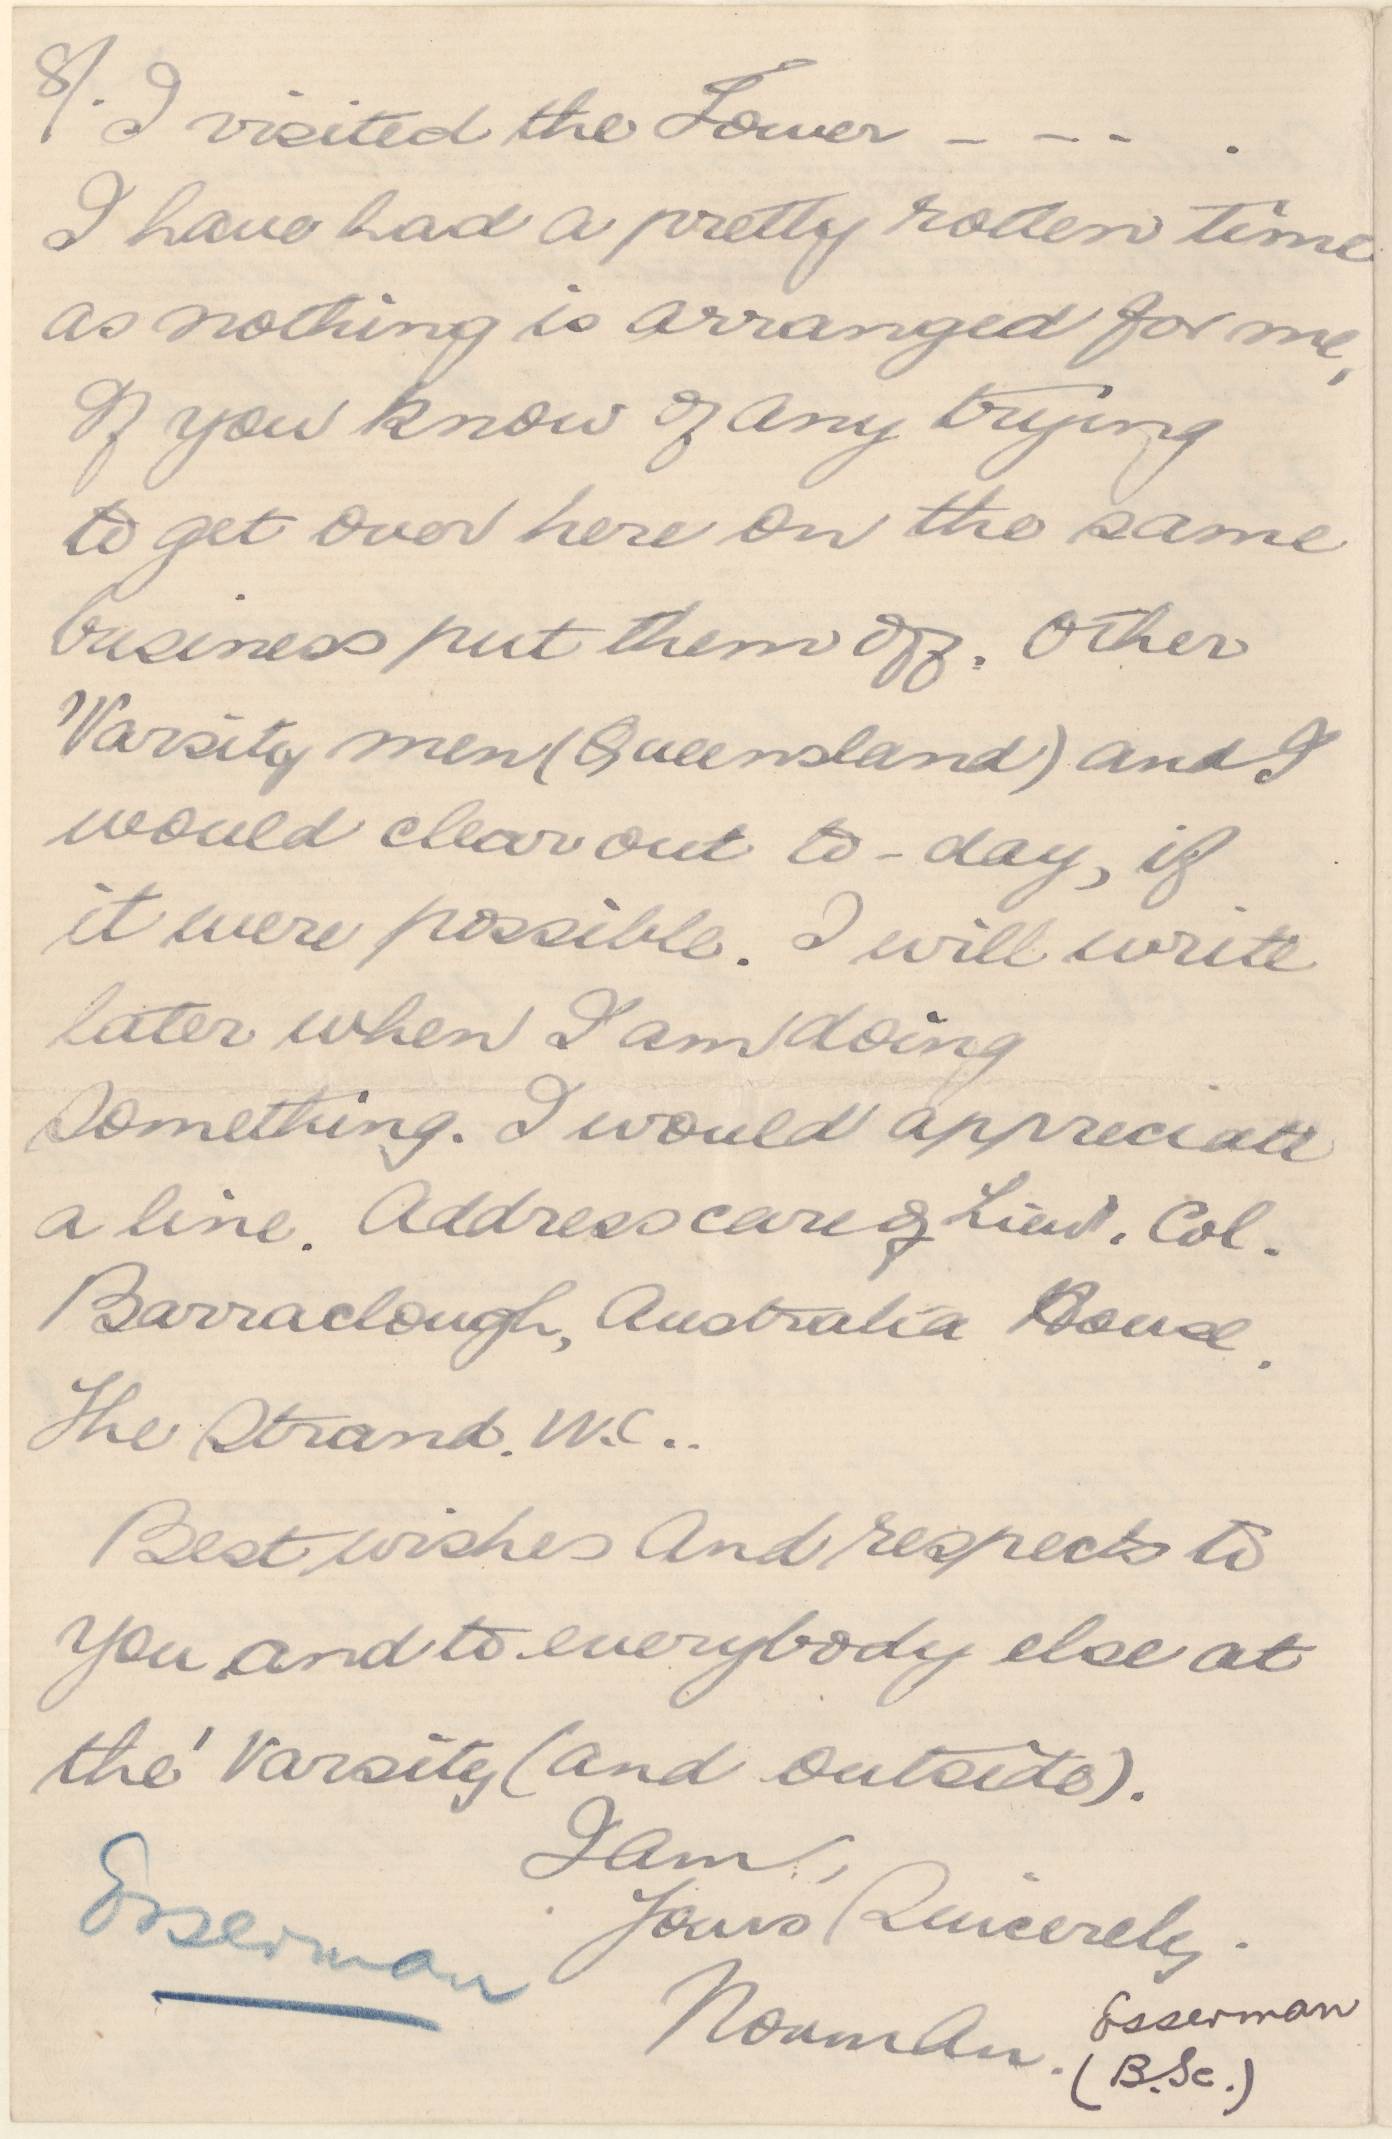 8/. I visited the Tower - - - .
I have had a pretty rotten time
as nothing is arranged for me,
If you know of any trying
to get over here on the same
business put them off. Other
'Varsity men (Queensland) and I
would clear out to-day, if
it were possible. I will write
later when I am doing
something. I would appreciate
a line. Address care of Lieut. Col.
Barraclough, Australia House.
The Strand. W.C..
Best wishes and respects to
you and to everybody else at
the 'Varsity (and outside).
I am,
Yours Sincerely.
Norman. Esserman
(B.Sc.)
Esserman